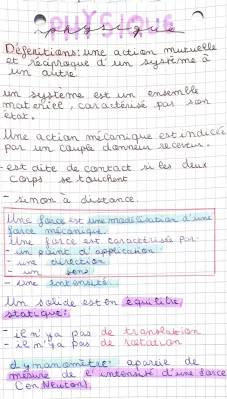 PHYSIQUE
physique
Défenitions: une action mutuelle
et réciproque d'un système à
un autre
un systeme est un ensemble
materiel, caractérisé par son
etat.
Une action mécanique est indicée
par un couple donneur receveur.
- est dite de contact si les deux
corps se touchent
- sinon à distance.
Une force est une modélisation d'une
force mécanique.
Une force est caractérisée par:
- un point d'application
- une direction
- un sens
- une intensité.
Un solide est en équilibre
statique:
- il n'y a pas de translation
- il n'y a pas de rotation
dynamomètre: appareil de
mesure de l'intensité d'une force
(en Newton).